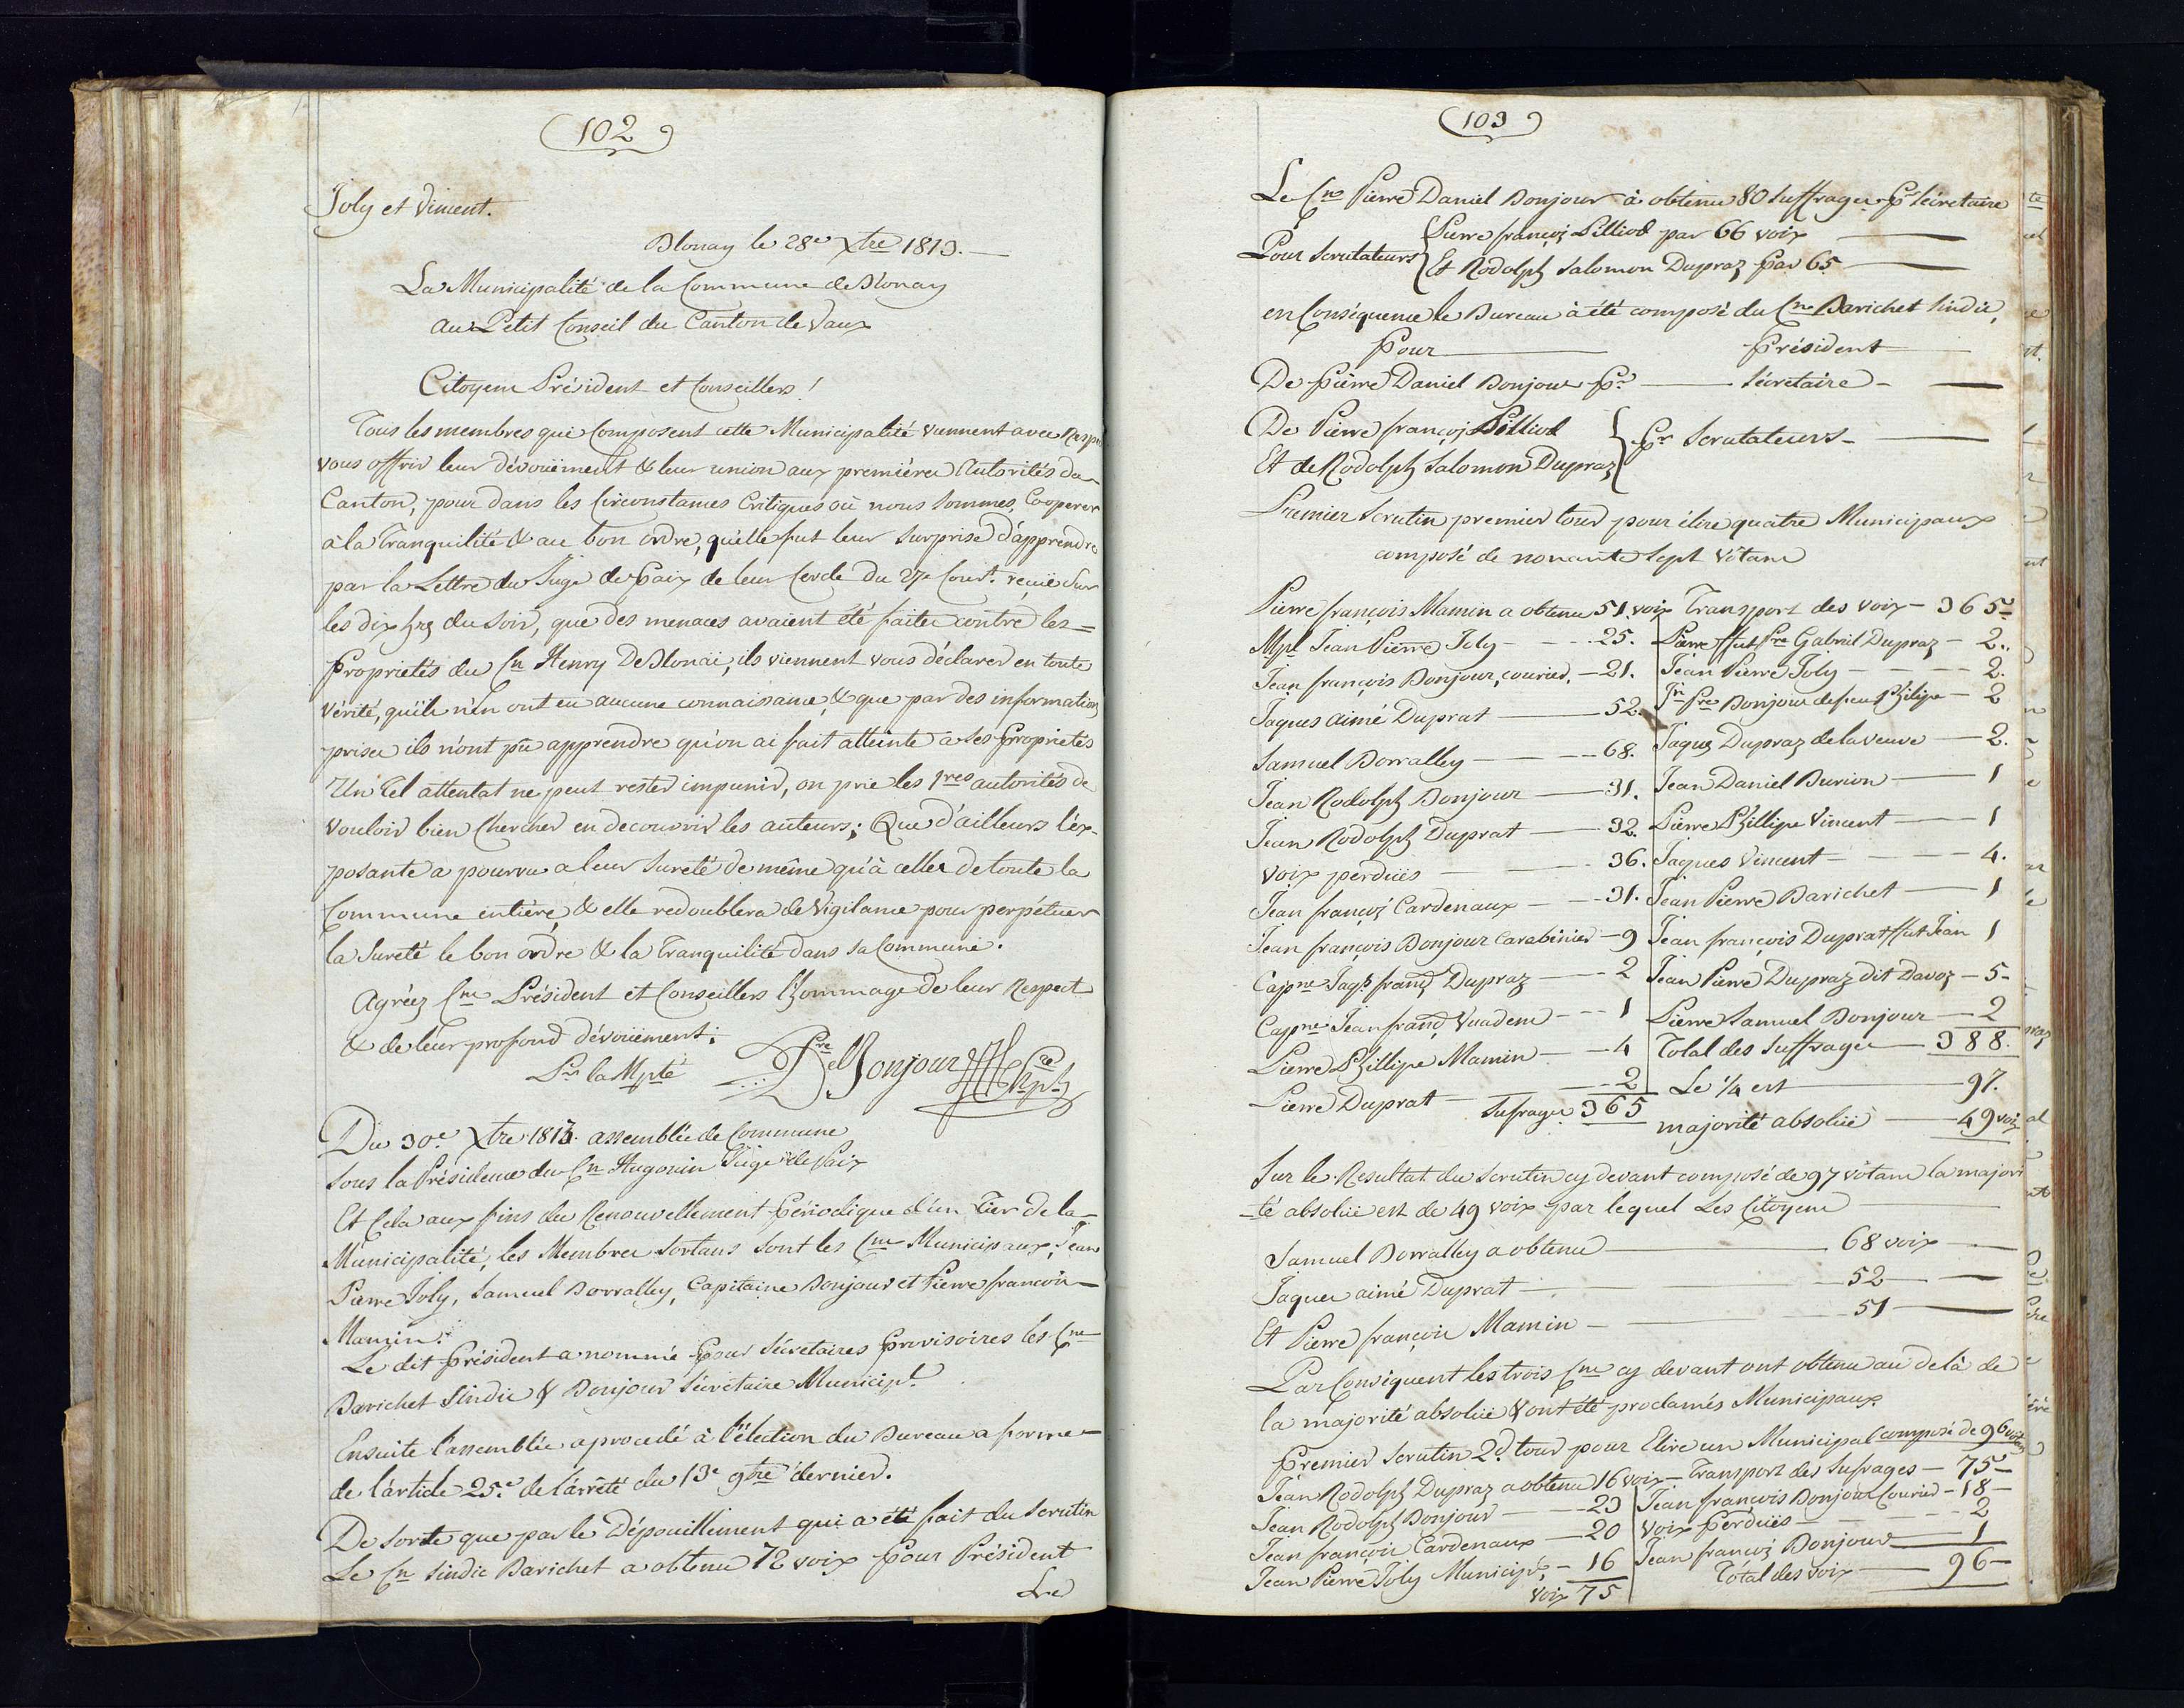 102
Joly et Vincent.
Blonay le 28e Xbre 1813.
La Municipalité de la Commune de Blonay
au Petit Conseil du Canton de Vaux
Citoyens Président et Conseillers !
Tous les membres qui composent cette Municipalité viennent avec Respe
vous offrir leur dévouëment & leur union aux premières Autorités du
Canton, pour dans les Circonstances Critiques où nous sommes, Cooperer
à la Tranquilité & au bon ordre, quelle fut leur surprise d'apprendre
par la Lettre du Juge de Paix de leur Cercle du 27e Cour.t reçuë sur
les dix hres du soir, que des menaces avaient été faites contre les
Propriétés du Cn Henry De Blonaÿ, ils viennent vous déclarer en toute
vérité, qu'ils n'en ont eu aucune connaissance, & que par des information
prises ils n'ont pû apprendre qu'on ai fait atteinte à ses Propriétés
Un Tel attentat ne peut rester impunis, on prie les 1res autorités de
vouloir bien Chercher en decouvrir les auteurs; Que d'ailleurs l'ex-
posante a pourvu a leur Sureté de même qu'à celles de toute la
Commune entière, & elle redoublera de Vigilance pour perpétuer
la Sureté le bon ordre & la Tranquilité dans sa Commune.
Agréez Cns Président et Conseillers l'hommage de leur Respect
& de leur profond dévouëment.
Pr la Mplté PreDel Bonjour Sre Mpl
Du 30e Xbre 1813. assemblée de Commune
sous la Présidence du Cn Hugonin Juge de Paix
Et Cela aux fins du Renouvellement Périodique d'un Tier de la
Municipalité, les Membres sortans sont les Cns Municipaux, Jean
Pierre Joly, Samuel Borralley, Capitaine Bonjour et Pierre françois
Mamin.
Le dit Président a nommé Pour Sécretaires Provisoires les Cns
Barichet Sindic & Bonjour Sécretaire Municipl.
Ensuite l'assemblée a procedé à l'élection du Bureau a forme
de l'article 25e de l'arrêté du 13e 9bre dernier.
De sorte que par le Dépouillement qui a été fait du scrutin
Le Cn Sindic Barichet a obtenu 72 voix Pour Président
Le
103
Le Cn Pierre Daniel Bonjour à obtenu 80 Suffrages Pr Sécretaire
Pour Scrutateurs { Pierre françois Pilliod par 66 voix
Et Rodolph Salomon Dupraz par 65
en Conséquence le Bureau à été composé du Cn Barichet Sindic,
Pour Président
De Pierre Daniel Bonjour Pr Sécretaire
De Pierre françois Pilliod } Pr Scrutateurs
Et de Rodolph Salomon Dupraz
Premier Scrutin premier tour pour élire quatre Municipaux
composé de nonante sept Votans
Pierre françois Mamin a obtenu 51. voix
Mpl Jean Pierre Joly 25.
Jean françois Bonjour, courier, 21.
Jaques aimé Duprat 52.
Samuel Borralley 68.
Jean Rodolph Bonjour 31.
Jean Rodolph Duprat 32.
Voix perdues 36.
Jean françois Cardenaux 31.
Jean françois Bonjour Carabinier 9
Capne Jaqs franç Dupraz 2
Capne Jean franç Vuadens 1
Pierre Phillipe Mamin 4
Pierre Duprat 2
Sufrages 365
Transport des voix 365
Pierre ffeu Pre Gabriel Dupraz 2
Jean Pierre Joly 2.
Jn Pre Bonjour de feu Philipe 2
Jaques Dupraz de la veuve 2.
Jean Daniel Burion 1
Pierre Phillipe Vincent 1
Jaques Vincent 4.
Jean Pierre Barichet 1
Jean françois Duprat ffeu Jean 1
Jean Pierre Dupraz dit Davoz 5
Pierre Samuel Bonjour 2
Total des Suffrages 388.
Le 1/4 est 97.
majorité absoluë 49 voix
Sur le Resultat du Scrutin cy devant composé de 97 votans la majori
té absoluë est de 49 voix par lequel Les Citoyens
Samuel Borralley a obtenu 68 voix
Jaques aimé Duprat 52
Et Pierre françois Mamin 51
Par Conséquent les trois Cns cy devant ont obtenu au delà de
la majorité absoluë & ont été proclamés Municipaux.
Premier Scrutin 2d. tour pour Elire un Municipal composé de 96 votans
Jean Rodolph Dupraz a obtenu 16 voix
Jean Rodolph Bonjour 23
Jean françois Cardenaux 20
Jean Pierre Joly Municipl. 16
Voix 75
Transport des Sufrages 75
Jean françois Bonjour Courier 18
Voix Perduës 2
Jean françois Bonjour 1
Total des Voix 96